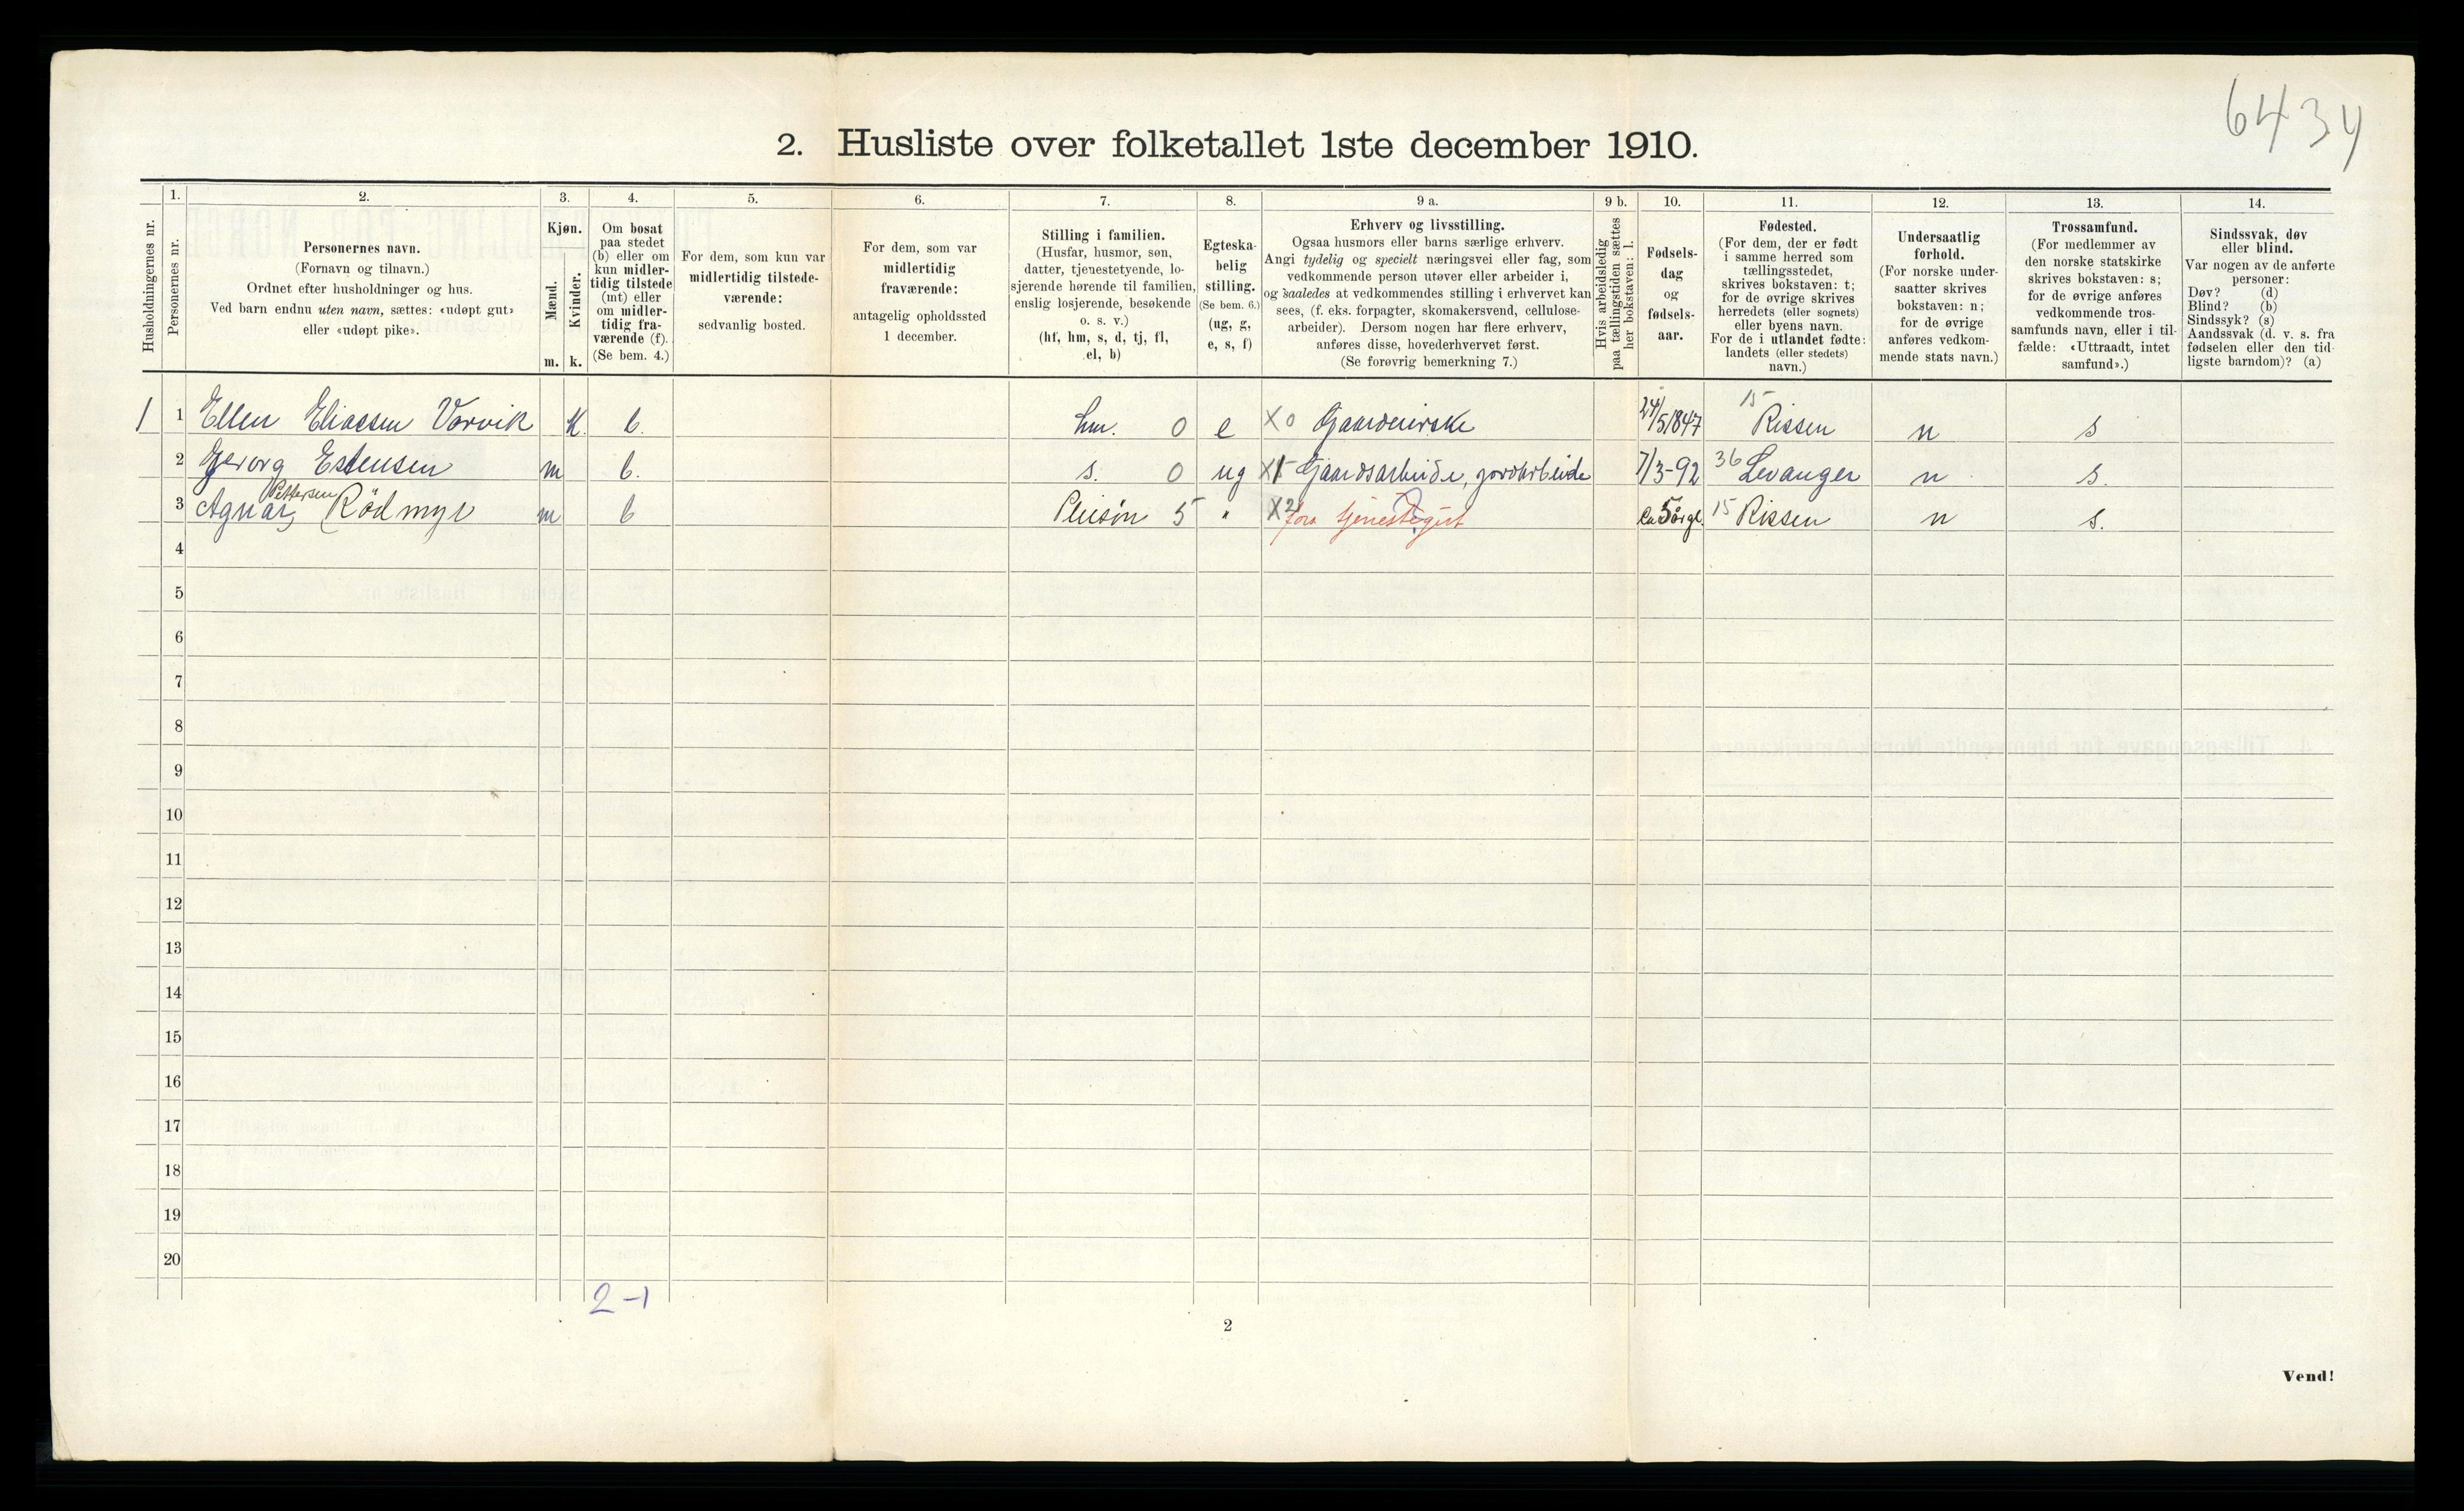 6434
2. Husliste over folketallet 1ste december 1910.
Husholdningernes nr.
1.
Personernes nr.
2.
Personernes navn.
(Fornavn og tilnavn.)
Ordnet efter husholdninger og hus.
Ved barn endnu uten navn, sættes: «udøpt gut»
eller «udøpt pike».
3.
Kjøn.
Mænd.
Kvinder.
m. k.
4.
Om bosat
paa stedet
(b) eller om
kun midler-
tidig tilstede
(mt) eller
om midler-
tidig fra-
værende (f).
(Se bem. 4.)
5.
For dem, som kun var
midlertidig tilstede-
værende:
sedvanlig bosted.
6.
For dem, som var
midlertidig
fraværende:
antagelig opholdssted
1 december.
7.
Stilling i familien.
(Husfar, husmor, søn,
datter, tjenestetyende, lo-
sjerende hørende til familien,
enslig losjerende, besøkende
o. s. v.)
(hf, hm, s, d, tj, fl,
el, b)
8.
Egteska-
belig
stilling.
(Se bem. 6.)
(ug, g,
e, s, f)
9 a.
Erhverv og livsstilling.
Ogsaa husmors eller barns særlige erhverv.
Angi tydelig og specielt næringsvei eller fag, som
vedkommende person utøver eller arbeider i,
og saaledes at vedkommendes stilling i erhvervet kan
sees, (f. eks. forpagter, skomakersvend, cellulose-
arbeider). Dersom nogen har flere erhverv,
anføres disse, hovederhvervet først.
(Se forøvrig bemerkning 7.)
9 b.
Hvis arbeidsledig
paa tællingstiden sættes
her bokstaven: l.
10.
Fødsels-
dag
og
fødsels-
aar.
11.
Fødested.
(For dem, der er født
i samme herred som
tællingsstedet,
skrives bokstaven: t;
for de øvrige skrives
herredets (eller sognets)
eller byens navn.
For de i utlandet fødte:
landets (eller stedets)
navn.)
12.
Undersaatlig
forhold.
(For norske under-
saatter skrives
bokstaven: n;
for de øvrige
anføres vedkom-
mende stats navn.)
13.
Trossamfund.
(For medlemmer av
den norske statskirke
skrives bokstaven: s;
for de øvrige anføres
vedkommende tros-
samfunds navn, eller i til-
fælde: «Uttraadt, intet
samfund».)
14.
Sindssvak, døv
eller blind.
Var nogen av de anførte
personer:
Døv? (d)
Blind? (b)
Sindssyk? (s)
Aandssvak (d. v. s. fra
fødselen eller den tid-
ligste barndom)? (a)
1 1 Ellen Eliassen Vorvik k b. hm. 0 e X0 Gaardenirske 24/5 1847 15 Rissen n s
2 Georg Estensen m b. s. 0 ug X1 Gaardsarbeide, jordarbeide 7/3-92 36 Levanger n s.
3 Agnar Pettersen Rödmyr m b Pleisön 5 " X2 fora tjenestegut Ca 5 årgl. 15 Rissen n s.
4
5
6
7
8
9
10
11
12
13
14
15
16
17
18
19
20
2-1
2
Vend!